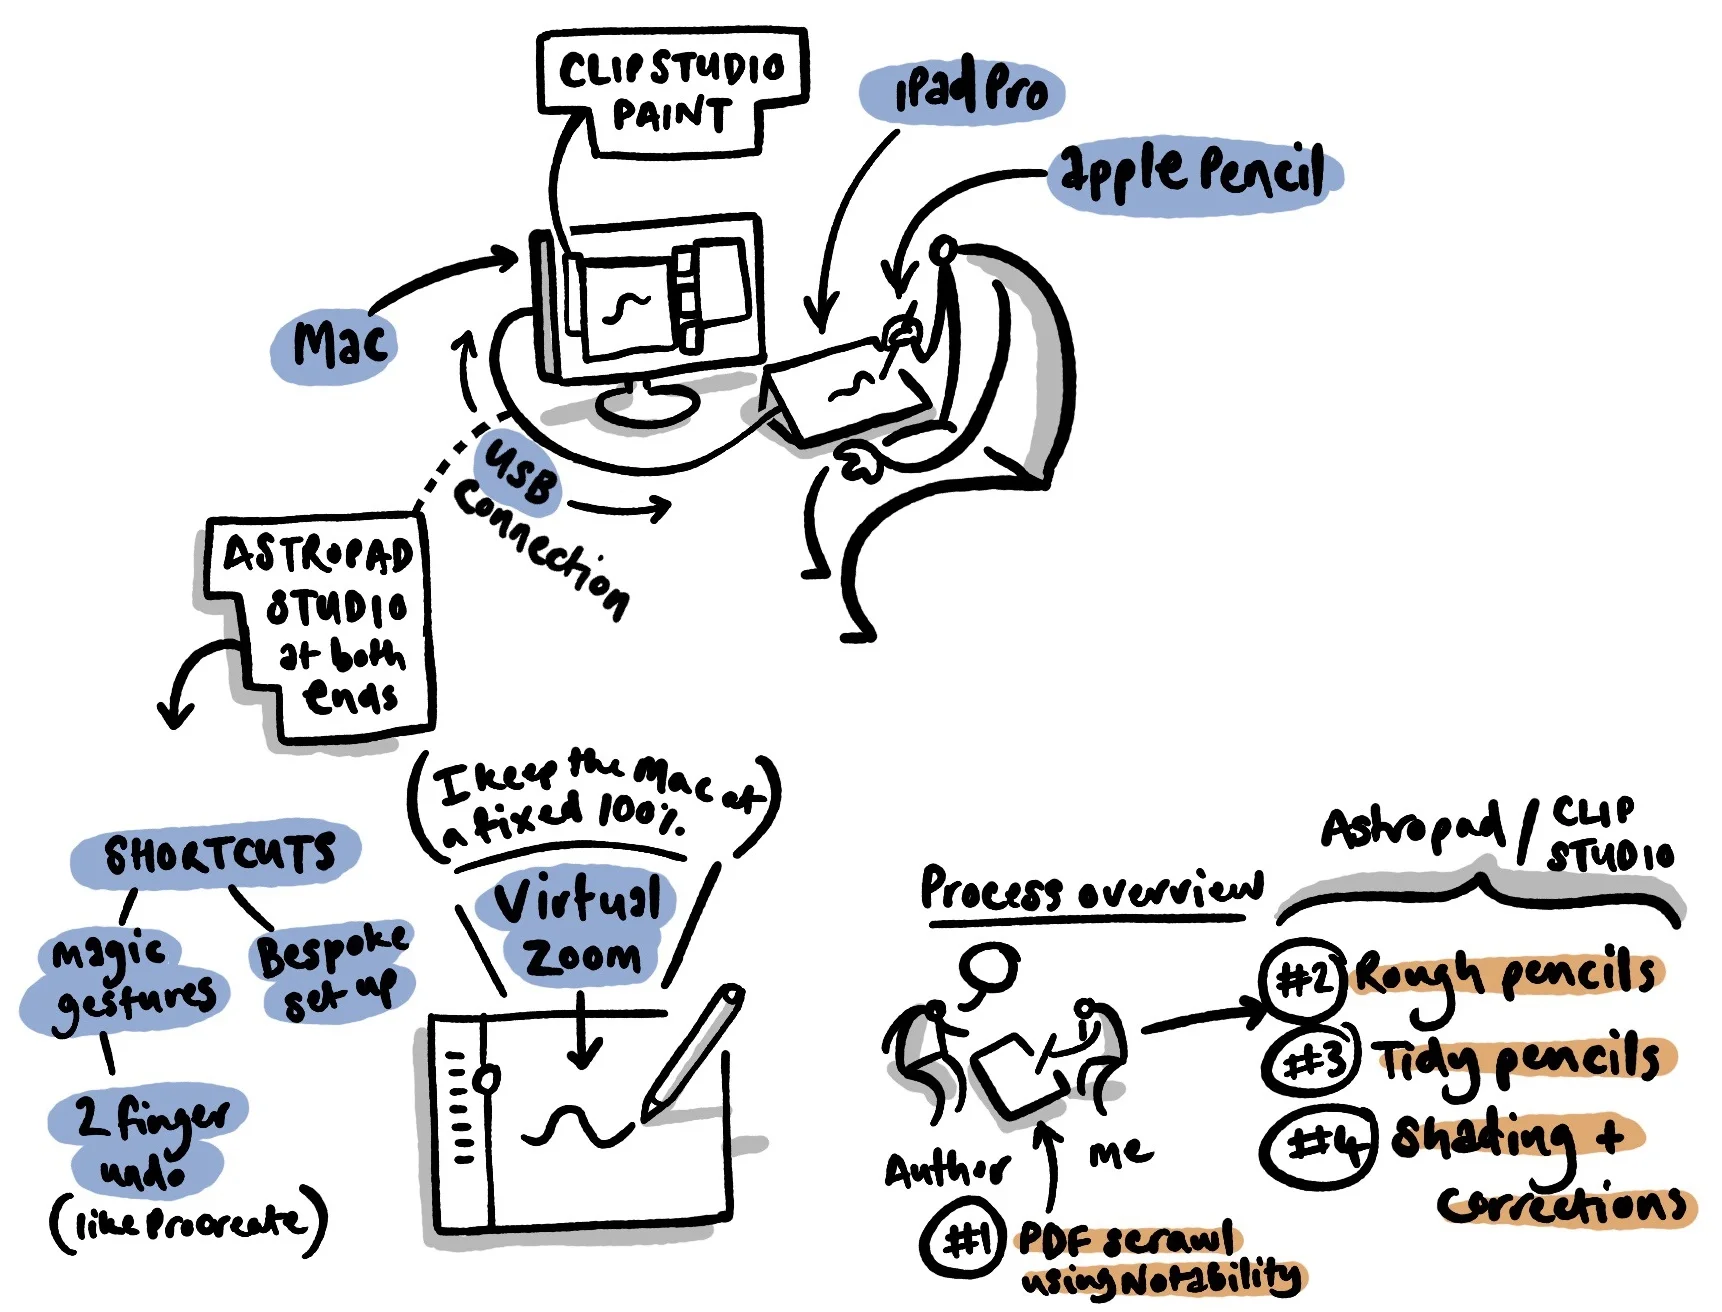 CLIP STUDIO
PAINT
iPad Pro
apple Pencil
Mac
USB
Connection
ASTROPAD
STUDIO
at both
ends
(I keep the Mac at
a fixed 100%.)
SHORTCUTS
magic
gestures
Bespoke
set up
2 finger
undo
(like Procreate)
Virtual
Zoom
Process overview
Astropad / CLIP
STUDIO
#2 Rough pencils
#3 Tidy pencils
#4 Shading +
Corrections
Author
me
#1 PDF scrawl
using Notability